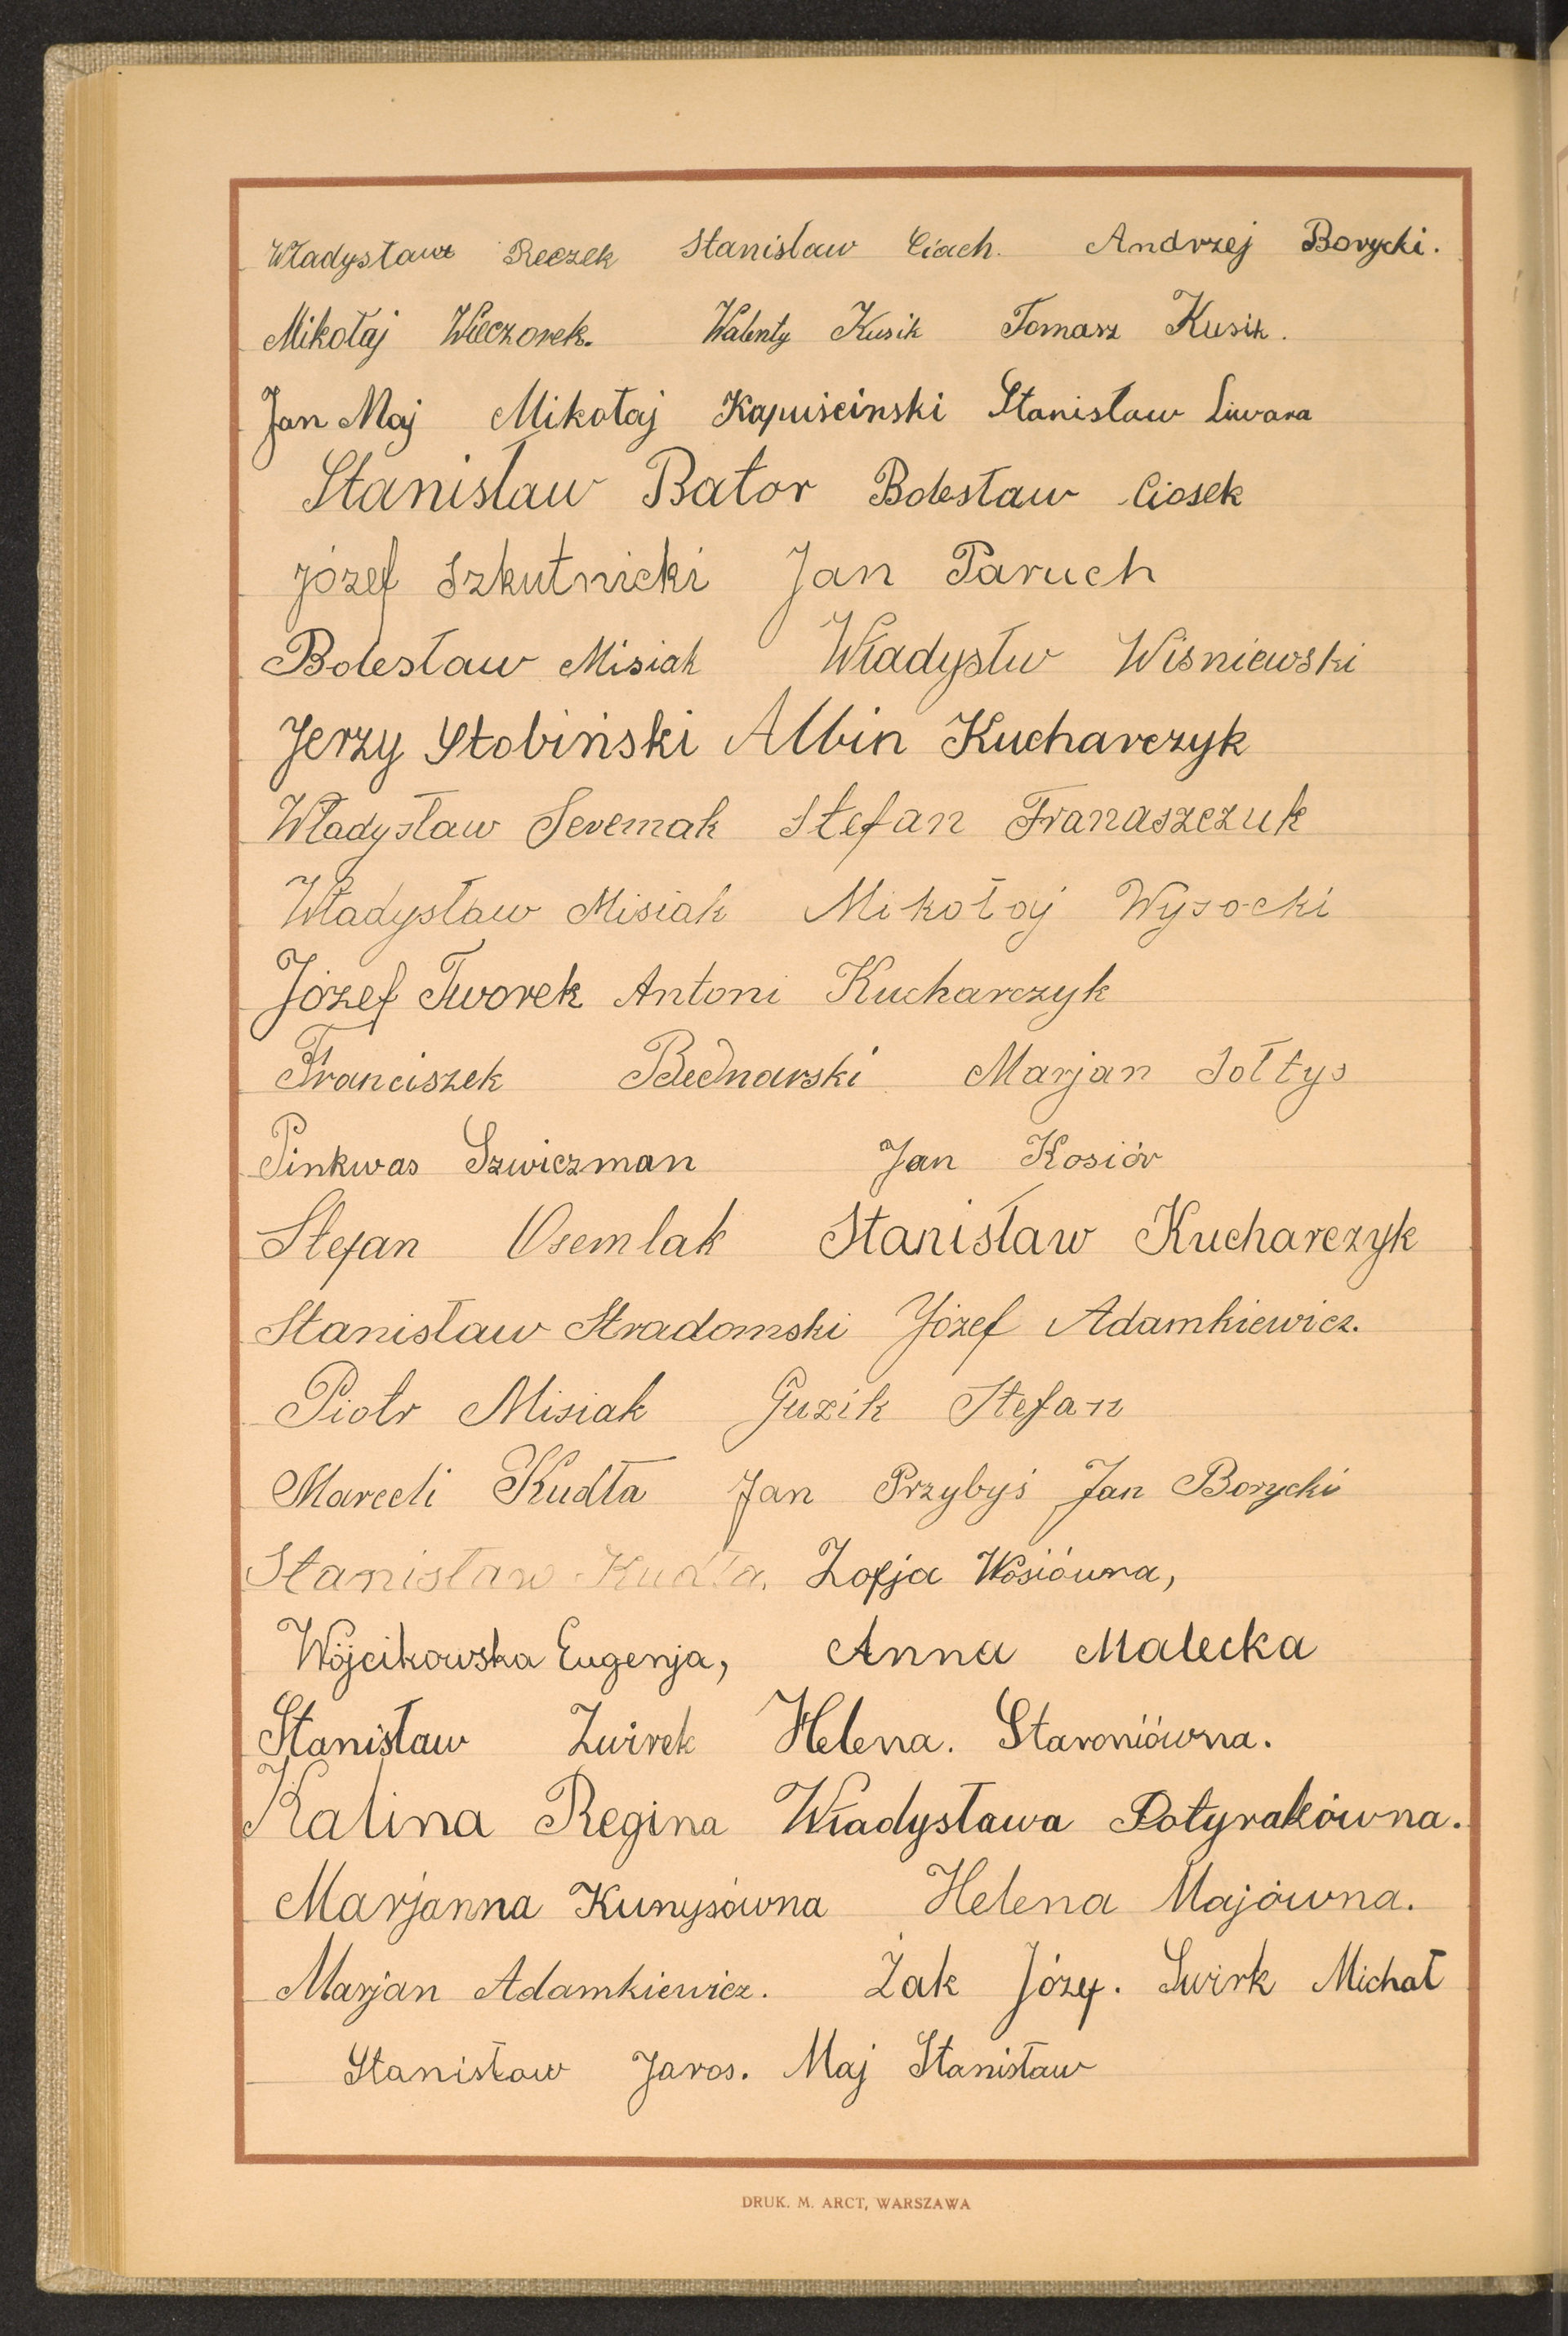 Władysław Reczek Stanisław Ciach. Andrzej Borycki.
Mikołaj Wieczorek. Walenty Kusik Tomasz Kusik.
Jan Maj Mikołaj Kapuścinski Stanisław Siwara
Stanisław Bator Bolesław Ciosek
Józef Szkutnicki Jan Paruch
Bolesław Misiak Władysłw Wiśniewski
Jerzy Stobiński Albin Kucharczyk
Władysław Seremak Stefan Franaszczuk
Władysław Misiak Mikołaj Wysocki
Józef Tworek Antoni Kucharczyk
Franciszek Bednarski Marjan Sołtys
Pinkwas Szwiczman Jan Kosiór
Stefan Osemlak Stanisław Kucharczyk
Stanisław Stradomski Józef Adamkiewicz.
Piotr Misiak Guzik Stefan
Marceli Kudła Jan Przybyś Jan Borycki
Stanisław Kudła, Zofja Wosiówna,
Wójcikowska Eugenja, Anna Malecka
Stanisław Zwirek Helena. Staroniówna.
Kalina Regina Władysława Potyrakówna.
Marjanna Kunysówna Helena Majówna.
Marjan Adamkiewicz. Żak Józef. Swirk Michał
Stanisław Jaros. Maj Stanisław
DRUK. M. ARCT, WARSZAWA